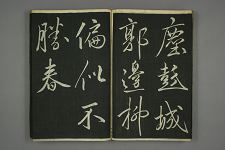 塵城
郭邊柳
偏似不
勝春